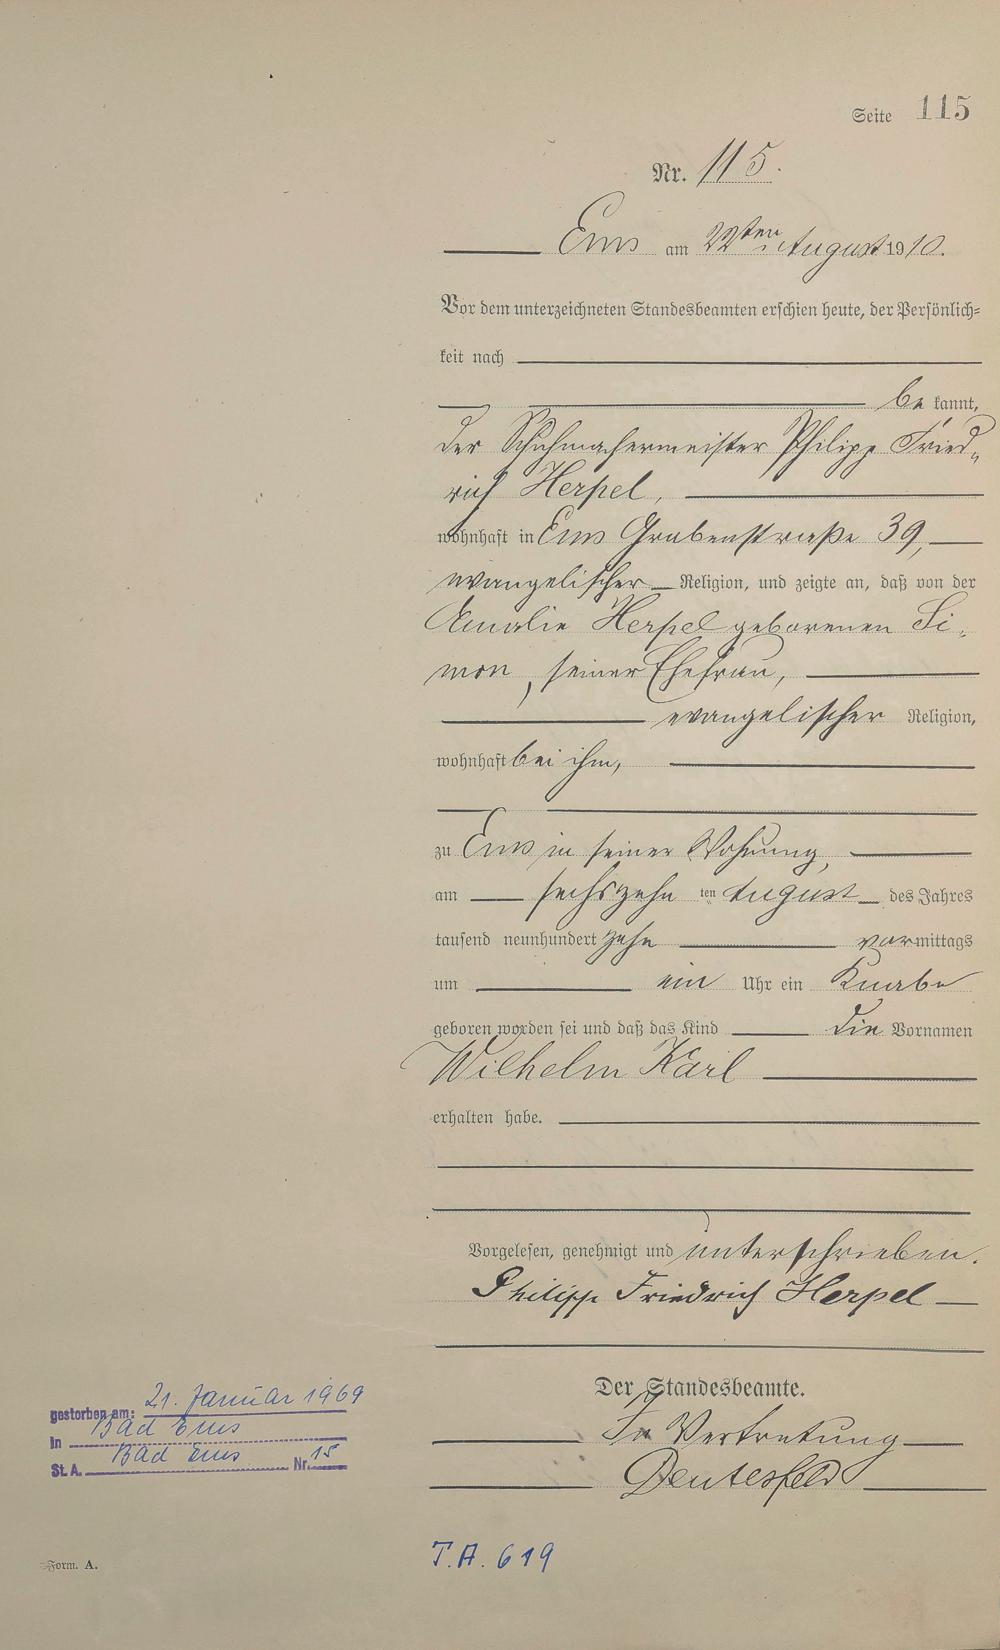 Seite 115
Nr. 115.
Ems am 22ten August 1910.
Vor dem unterzeichneten Standesbeamten erschien heute, der Persönlich-
keit nach
be kannt,
der Schuhmachermeister Philipp Fried-
rich Herpel,
wohnhaft in Ems Grabenstraße 39,
evangelischer Religion, und zeigte an, daß von der
Amalie Herpel geborenen Si-
mon, seiner Ehefrau,
evangelischer Religion,
wohnhaft bei ihm,
zu Ems in seiner Wohnung,
am sechszehn ten August des Jahres
tausend neunhundert zehn vormittags
um ein Uhr ein Knabe
geboren worden sei und daß das Kind die Vornamen
Wilhelm Karl
erhalten habe.
Vorgelesen, genehmigt und unterschrieben.
Philipp Friedrich Herpel
Der Standesbeamte.
In Vertretung
gestorben am: 21. Januar 1969
in Bad Ems
St. A. Bad Ems Nr. 15
T.A. 619
Form. A.